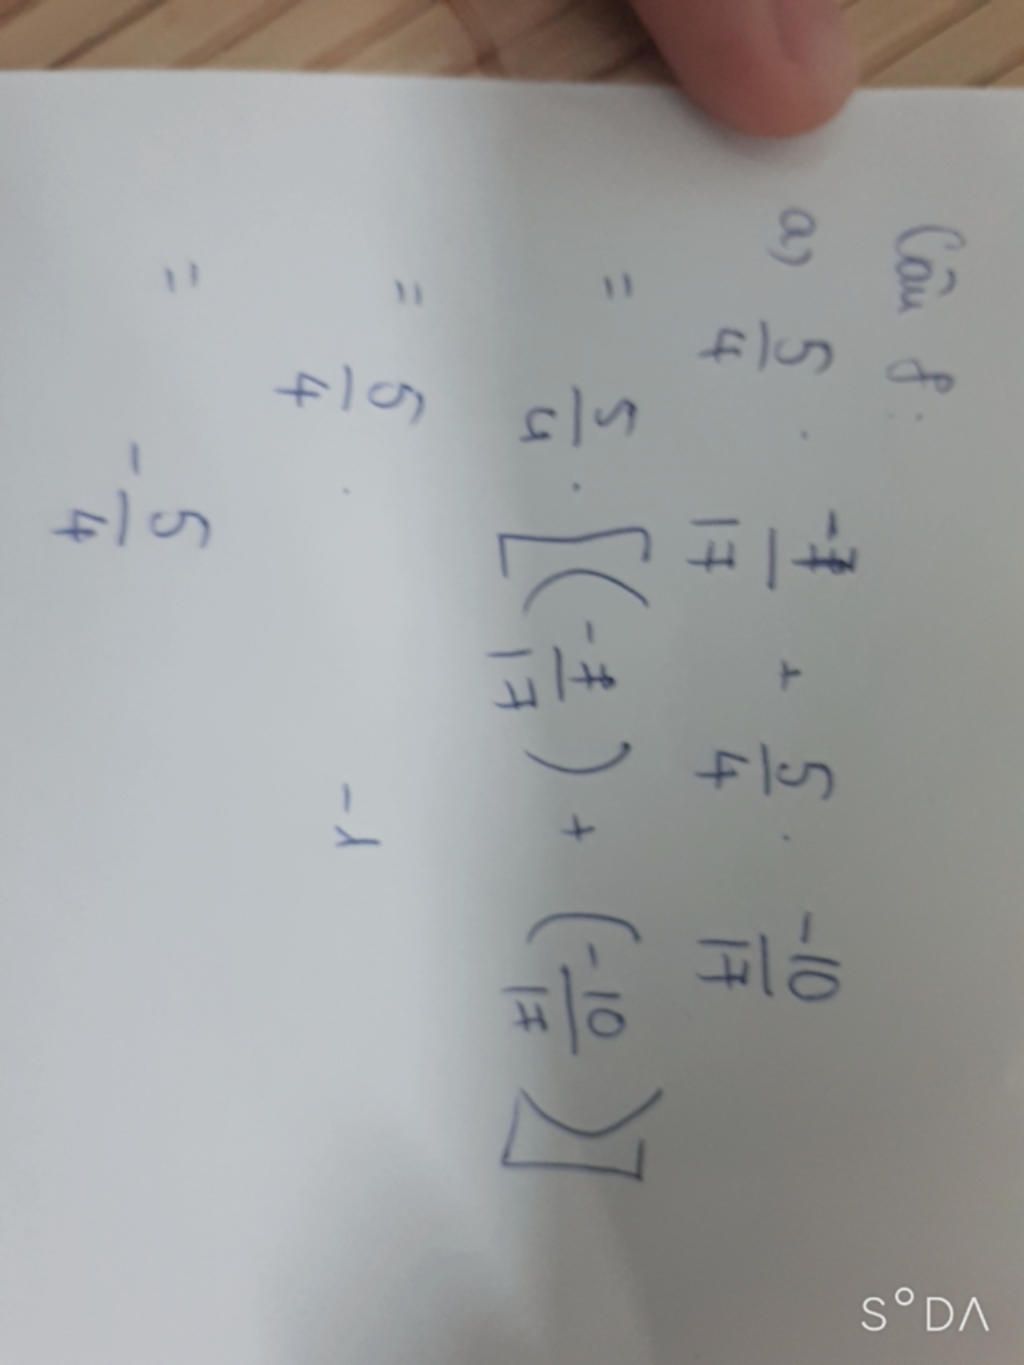 Câu 8:
a) 5/4 . -7/17 + 5/4 . -10/17
= 5/4 . [(-7/17) + (-10/17)]
= 5/4 . -1
= -5/4
S°DΛ